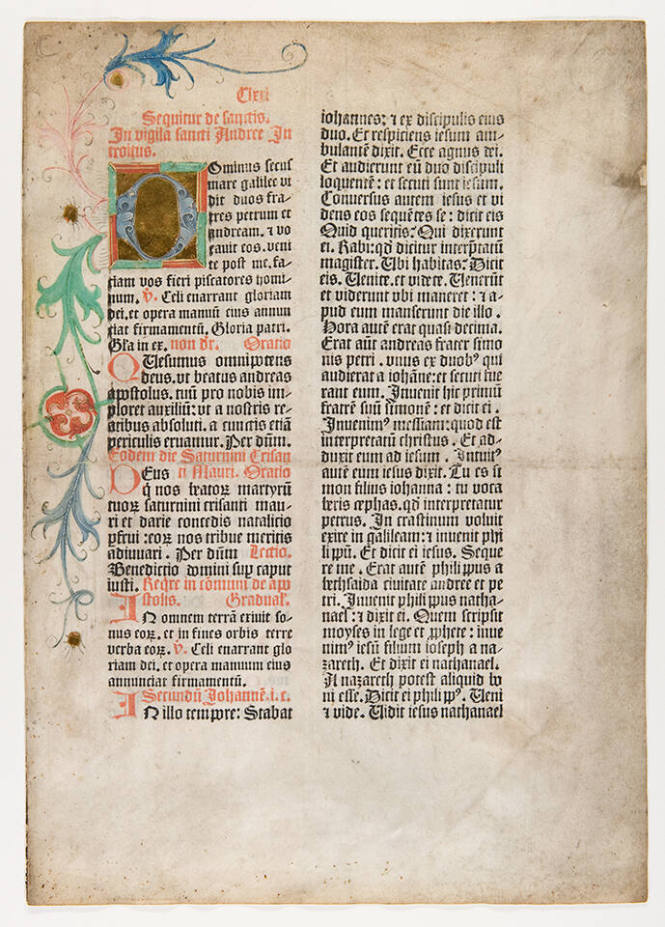 Clxii
Sequitur de sanctis.
In vigilia sancti Andree In
troitus.
Dominus secus
mare galilee vi
dit duos fra⸗
tres petrum et
andream. ⁊ vo
cauit eos. veni
te post me. fa⸗
ciam vos fieri piscatores homi⸗
num. v̄. Celi enarrant gloriam
dei. et opera manuū eius annun
ciat firmamentū. Gloria patri.
Gl̄a in ex. non dr̄. Oratio
QUesumus omnipotens
deus. vt beatus andreas
apostolus. tuū pro nobis im⸗
ploret auxiliū: vt a nostris re⸗
atibus absoluti. a cunctis etiā
periculis eruamur. Per dūm.
Eodem die Saturnini Crisan
ti Mauri. Oratio
DEus
q̄ nos beatoꝝ martyrū
tuoꝝ saturnini crisanti mau⸗
ri et darie concedis natalicio
ꝑfrui: eoꝝ nos tribue meritis
adiuuari. Per dūm Lectio.
Benedictio domini suꝑ caput
iusti. Reqre in cōmuni de apo
stolis. Gradual'.
IN omnem terrā exiuit so⸗
nus eoꝝ. et in fines orbis terre
verba eoꝝ. v̄. Celi enarrant glo
riam dei. et opera manuum eius
annunciat firmamentū.
Secundū Johannē. i. c.
IN illo tempore: Stabat
iohannes: ⁊ ex discipulis eius
duo. Et respiciens iesum am⸗
bulantē dixit. Ecce agnus dei.
Et audierunt eū duo discipuli
loquentē: et secuti sunt iesum.
Conuersus autem iesus et vi
dens eos sequētes se: dicit eis
Quid queritis: Qui dixerunt
ei. Rabi: qd̄ dicitur interp̄tatū
magister. Vbi habitas: Dicit
eis. Venite. et videte. Venerūt
et viderunt vbi maneret: ⁊ a⸗
pud eum manserunt die illo.
Hora autē erat quasi decima.
Erat aūt andreas frater simo
nis petri. vnus ex duobꝰ qui
audierat a iohāne: et secuti fue
rant eum. Inuenit hic primū
fratrē suū simonē: et dicit ei.
Inuenimꝰ messiam: quod est
interpretatū christus. Et ad⸗
duxit eum ad iesum. Intuitꝰ
autē eum iesus dixit. Tu es si
mon filius iohanna: tu voca
beris cephas. qd̄ interpretatur
petrus. In crastinum voluit
exire in galileam: ⁊ inuenit phi
lippū. Et dicit ei iesus. Seque
re me. Erat autē philippus a
bethsaida ciuitate andree et pe
tri. Inuenit philippus natha⸗
nael: ⁊ dixit ei. Quem scripsit
moyses in lege et ꝓphete: inue
nimꝰ iesū filium ioseph a na⸗
zareth. Et dixit ei nathanael.
A nazareth potest aliquid bo
ni esse. Dicit ei philippꝰ. Veni
⁊ vide. Vidit iesus nathanael